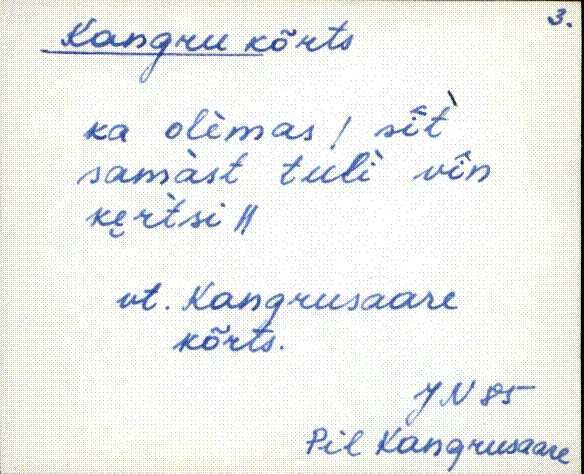 3.
Kangru kõrts
ka olèmas / sî̀t
samàst tulì vîn
kę̀rtsi //
vt. Kangrusaare
kõrts.
JN 85
Pil Kangrusaare